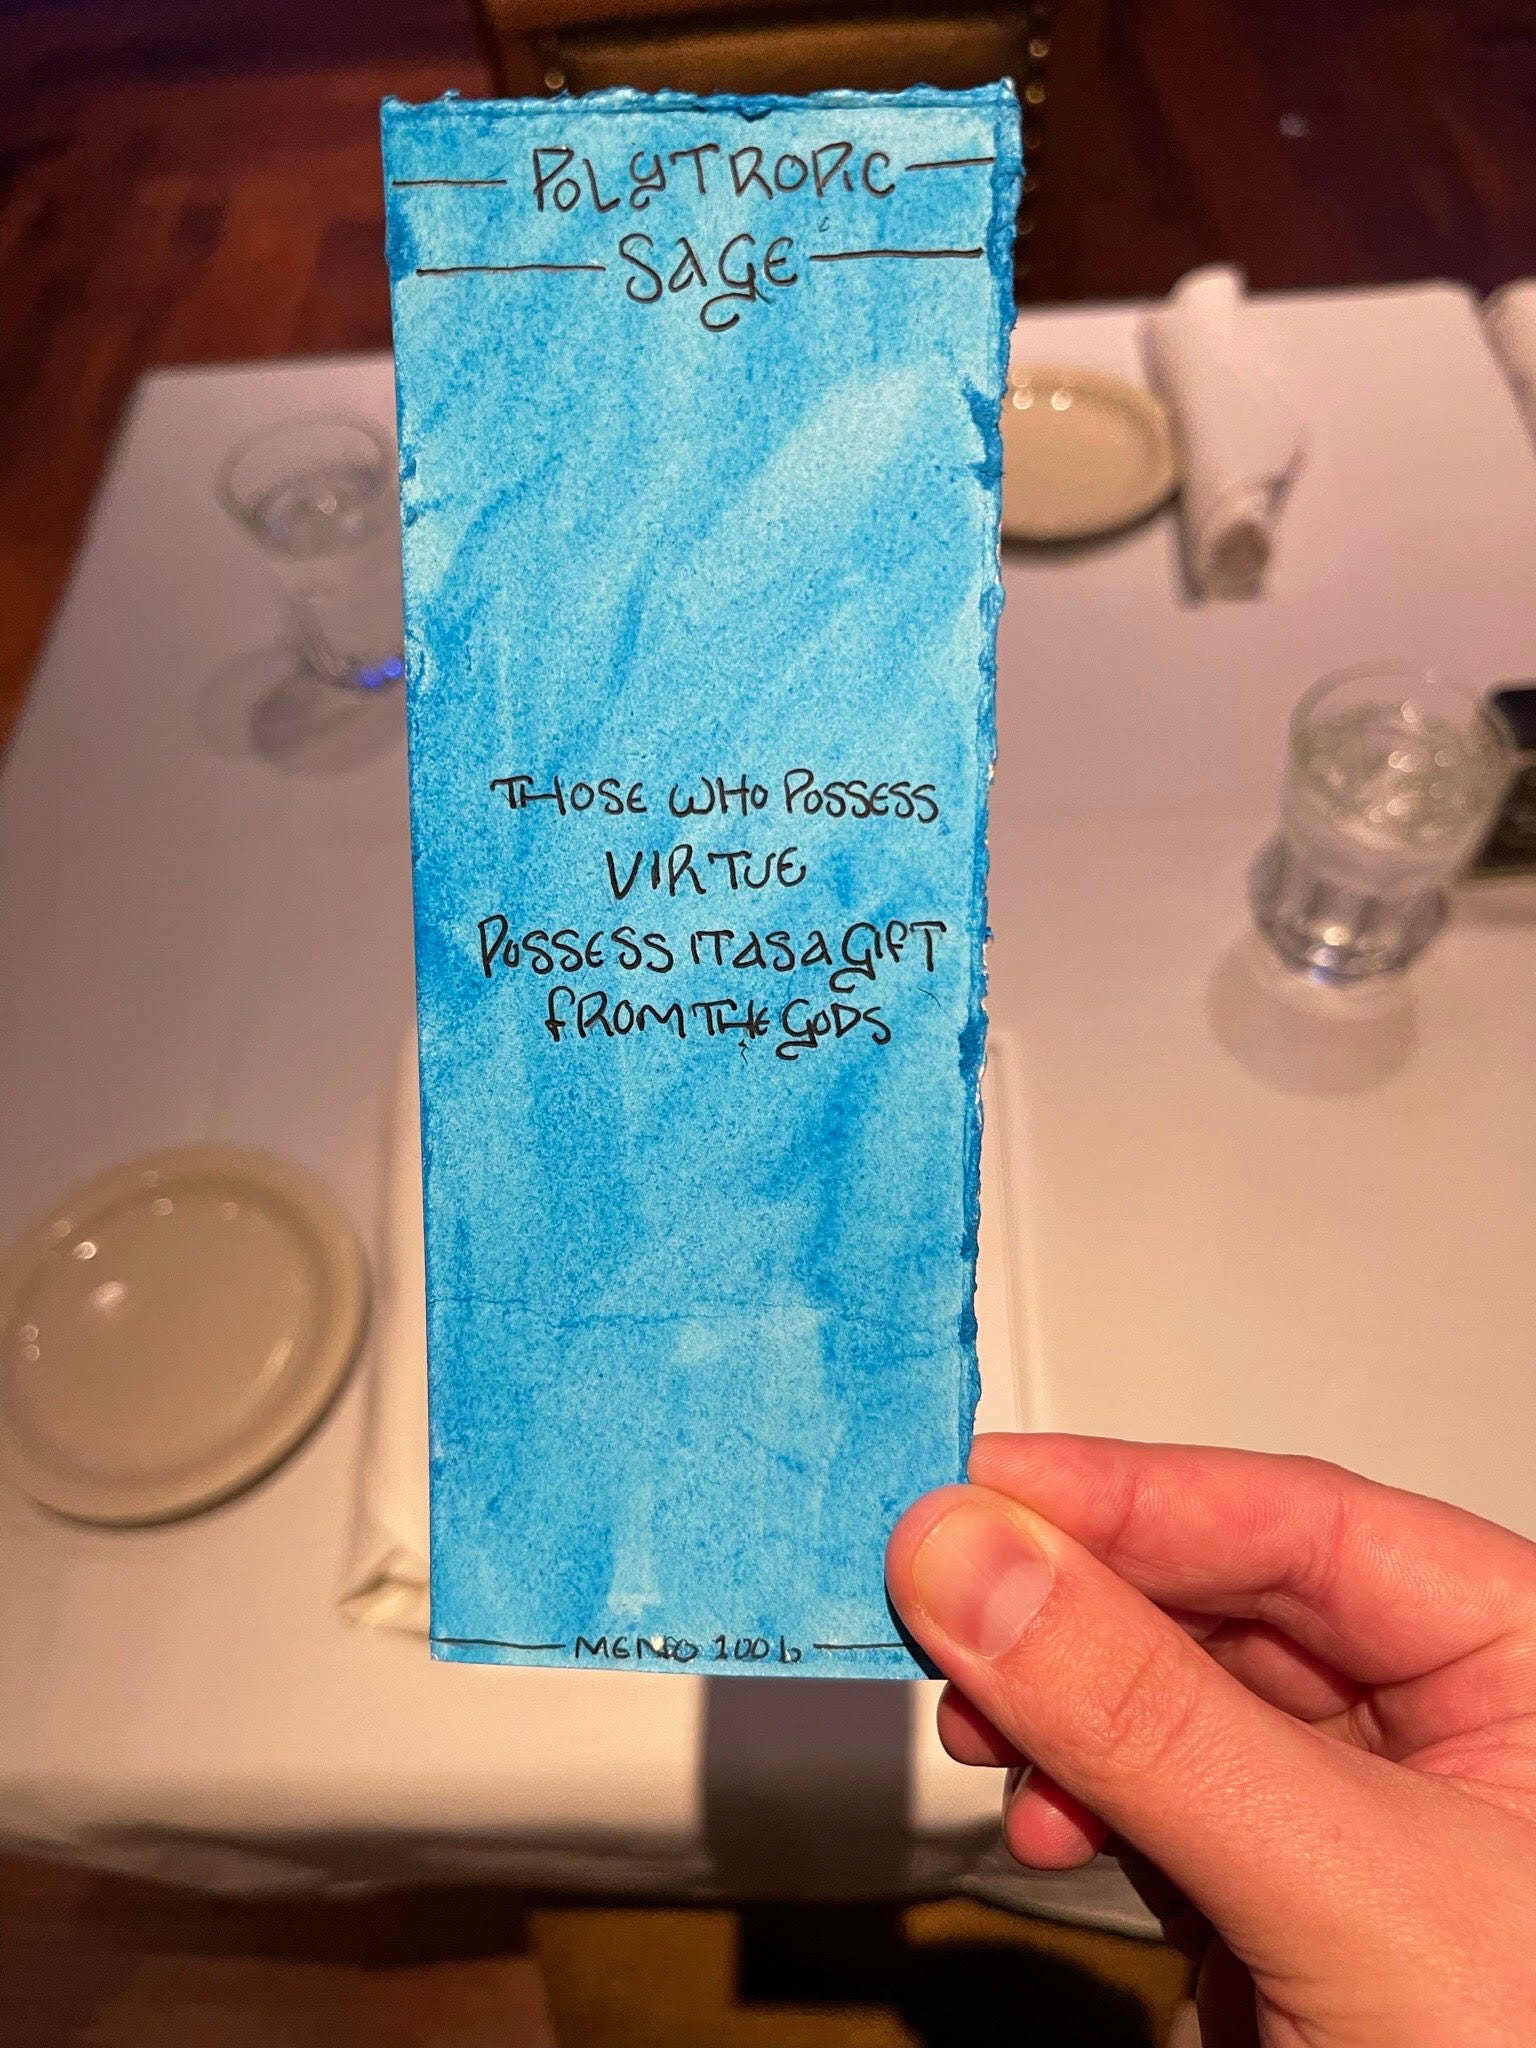 POLYTROPIC
SAGE
THOSE WHO POSSESS
VIRTUE
POSSESS IT AS A GIFT
FROM THE GODS
MENO 100b